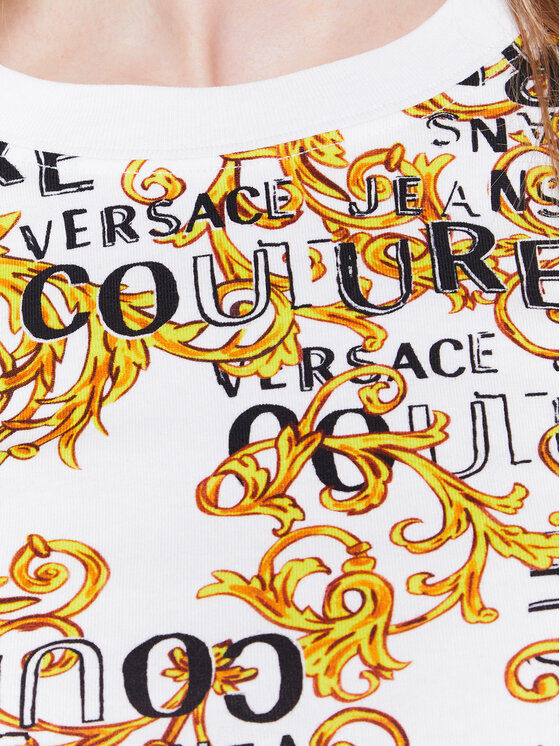 VERSACE JEANS
COUTURE
VERSACE
COU
COU